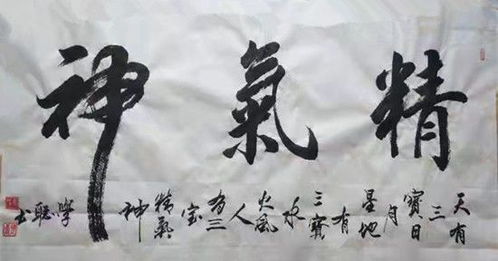 精氣神
天有
三
寶日
月
星地
有
三寶
水
火風
人
有三
宝
精氣
神
學
聪书